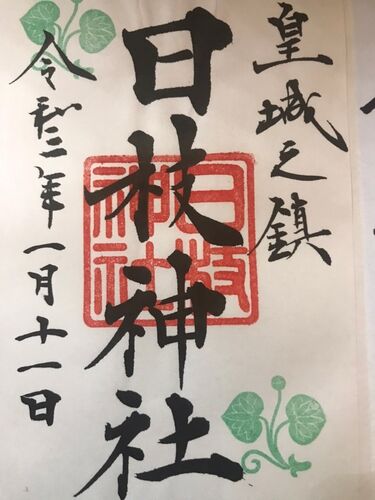 皇城之鎮
日枝神社
日枝
神社
令和二年一月十一日